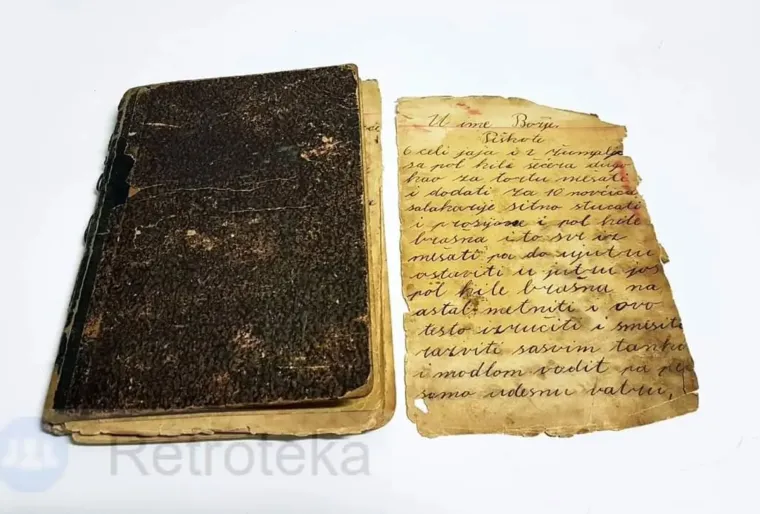 U ime Božje.
Piškoti
6 celi jaja i 2 žumanj
sa pol kile šećera dug
kao za tortu mešati
i dodati za 10 novčića
salakarije sitno stucati
i prosijane i pol kile
brašna i to sve iz
mešati pa do ujutru
ostaviti u jutru još
pol kile brašna na
astal metniti i ovo
testo izručiti i smesiti
razviti sasvim tanko
i modlom vadit pa peć
samo udesnu vatru,
Retroteka